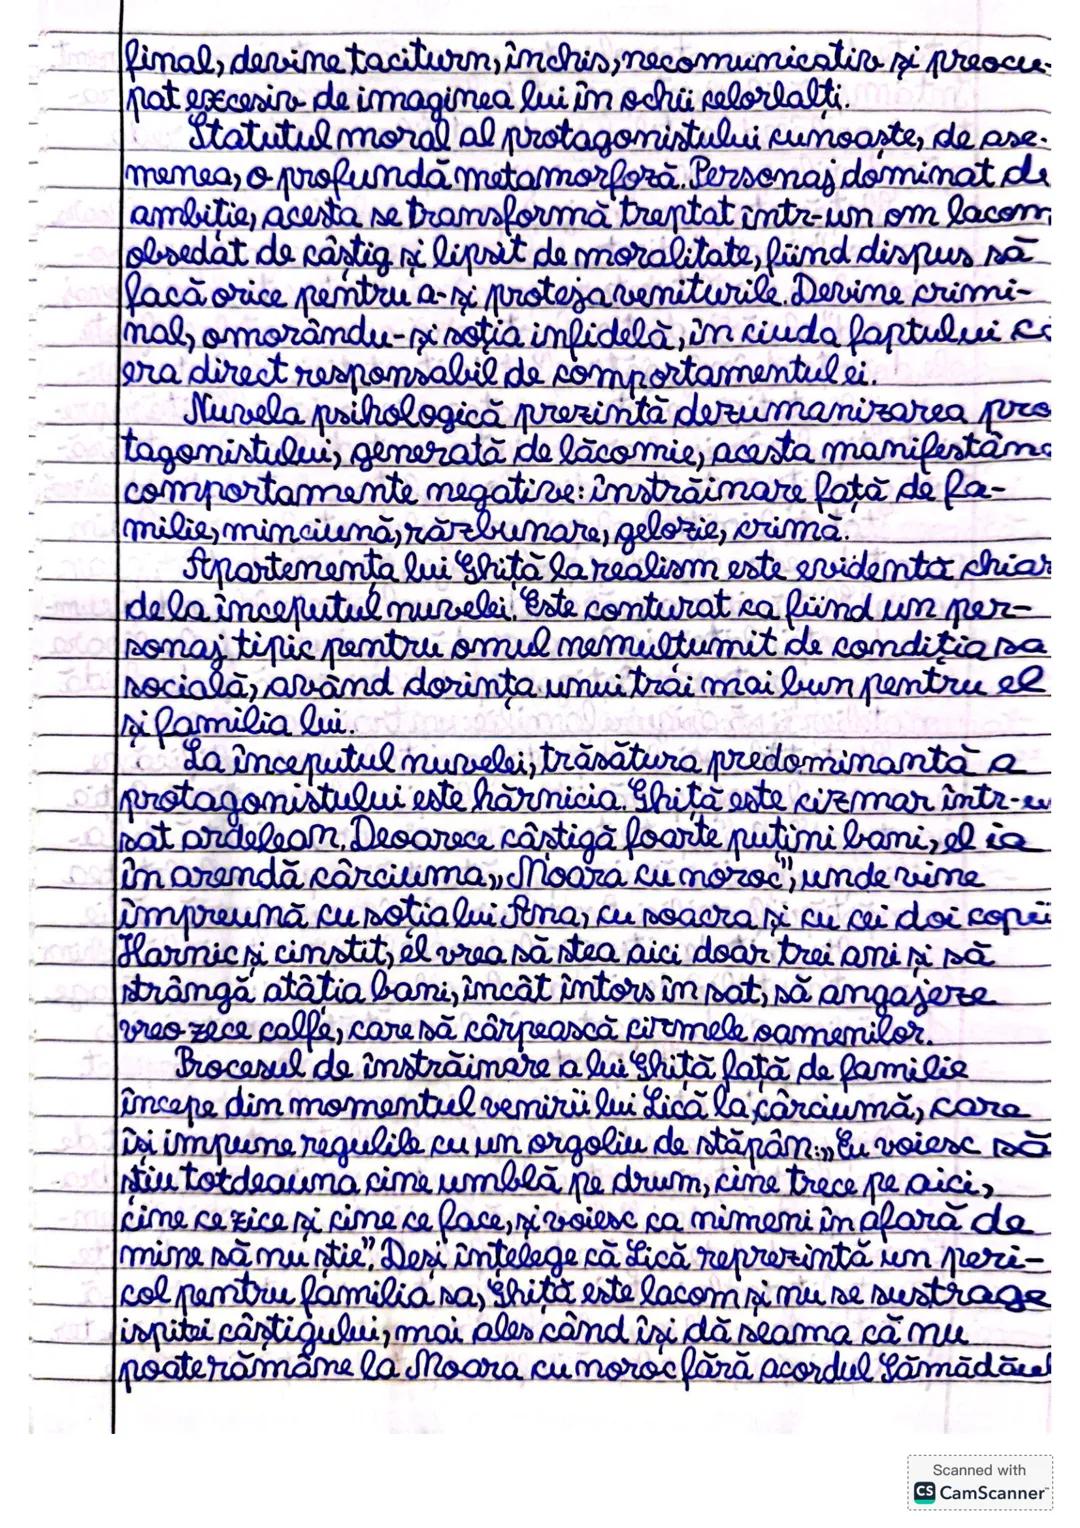 final, devine taciturn, închis, necomunicativ și preocu-
pat excesiv de imaginea lui în ochii celorlalți.
Statutul moral al protagonistului cunoaște, de ase-
menea, o profundă metamorfoză. Personaj dominat de
ambiție, acesta se transformă treptat într-un om lacom
obsedat de câștig și lipsit de moralitate, fiind dispus să
facă orice pentru a-și proteja veniturile. Devine crimi-
nal, omorându-și soția infidelă, în ciuda faptului că
era direct responsabil de comportamentul ei.
Nuvela psihologică prezintă dezumanizarea pro
tagonistului, generată de lăcomie, acesta manifestând
comportamente negative: înstrăinare față de fa-
milie, minciună, răzbunare, gelozie, crimă.
Apartenența lui Ghiță la realism este evidentă chiar
de la începutul nuvelei. Este conturat ca fiind un per-
sonaj tipic pentru omul nemulțumit de condiția sa
socială, având dorința unui trai mai bun pentru el
și familia lui.
La începutul nuvelei, trăsătura predominantă a
protagonistului este hărnicia. Ghiță este cizmar într-un
sat ardelean. Deoarece câștigă foarte puțini bani, el ia
în arendă cârciuma „Moara cu noroc”, unde vine
împreună cu soția lui Ana, cu soacra și cu cei doi copii
Harnic și cinstit, el vrea să stea aici doar trei ani și să
strângă atâția bani, încât întors în sat, să angajeze
vreo zece calfe, care să cârpească cizmele oamenilor.
Procesul de înstrăinare a lui Ghiță față de familie
începe din momentul venirii lui Lică la cârciumă, care
își impune regulile cu un orgoliu de stăpân: „Eu voiesc să
știu totdeauna cine umblă pe drum, cine trece pe aici,
cine ce zice și cine ce face, și voiesc ca nimeni în afară de
mine să nu știe”. Deși înțelege că Lică reprezintă un peri-
col pentru familia sa, Ghiță este lacom și nu se sustrage
ispitei câștigului, mai ales când își dă seama că nu
poate rămâne la Moara cu noroc fără acordul Sămădăul
Scanned with
CS CamScanner